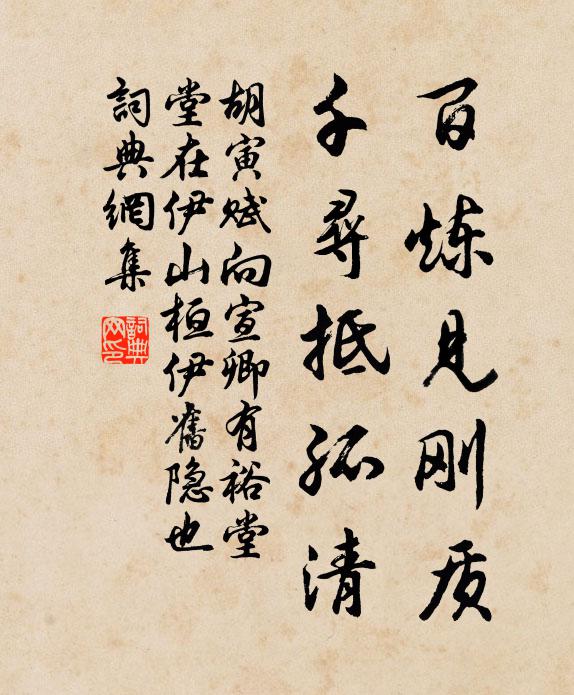 百炼见刚质
千寻抵孤清
胡寅赋向宣卿有裕堂
堂在伊山桓伊舊隐也
詞典網集
詞典网印